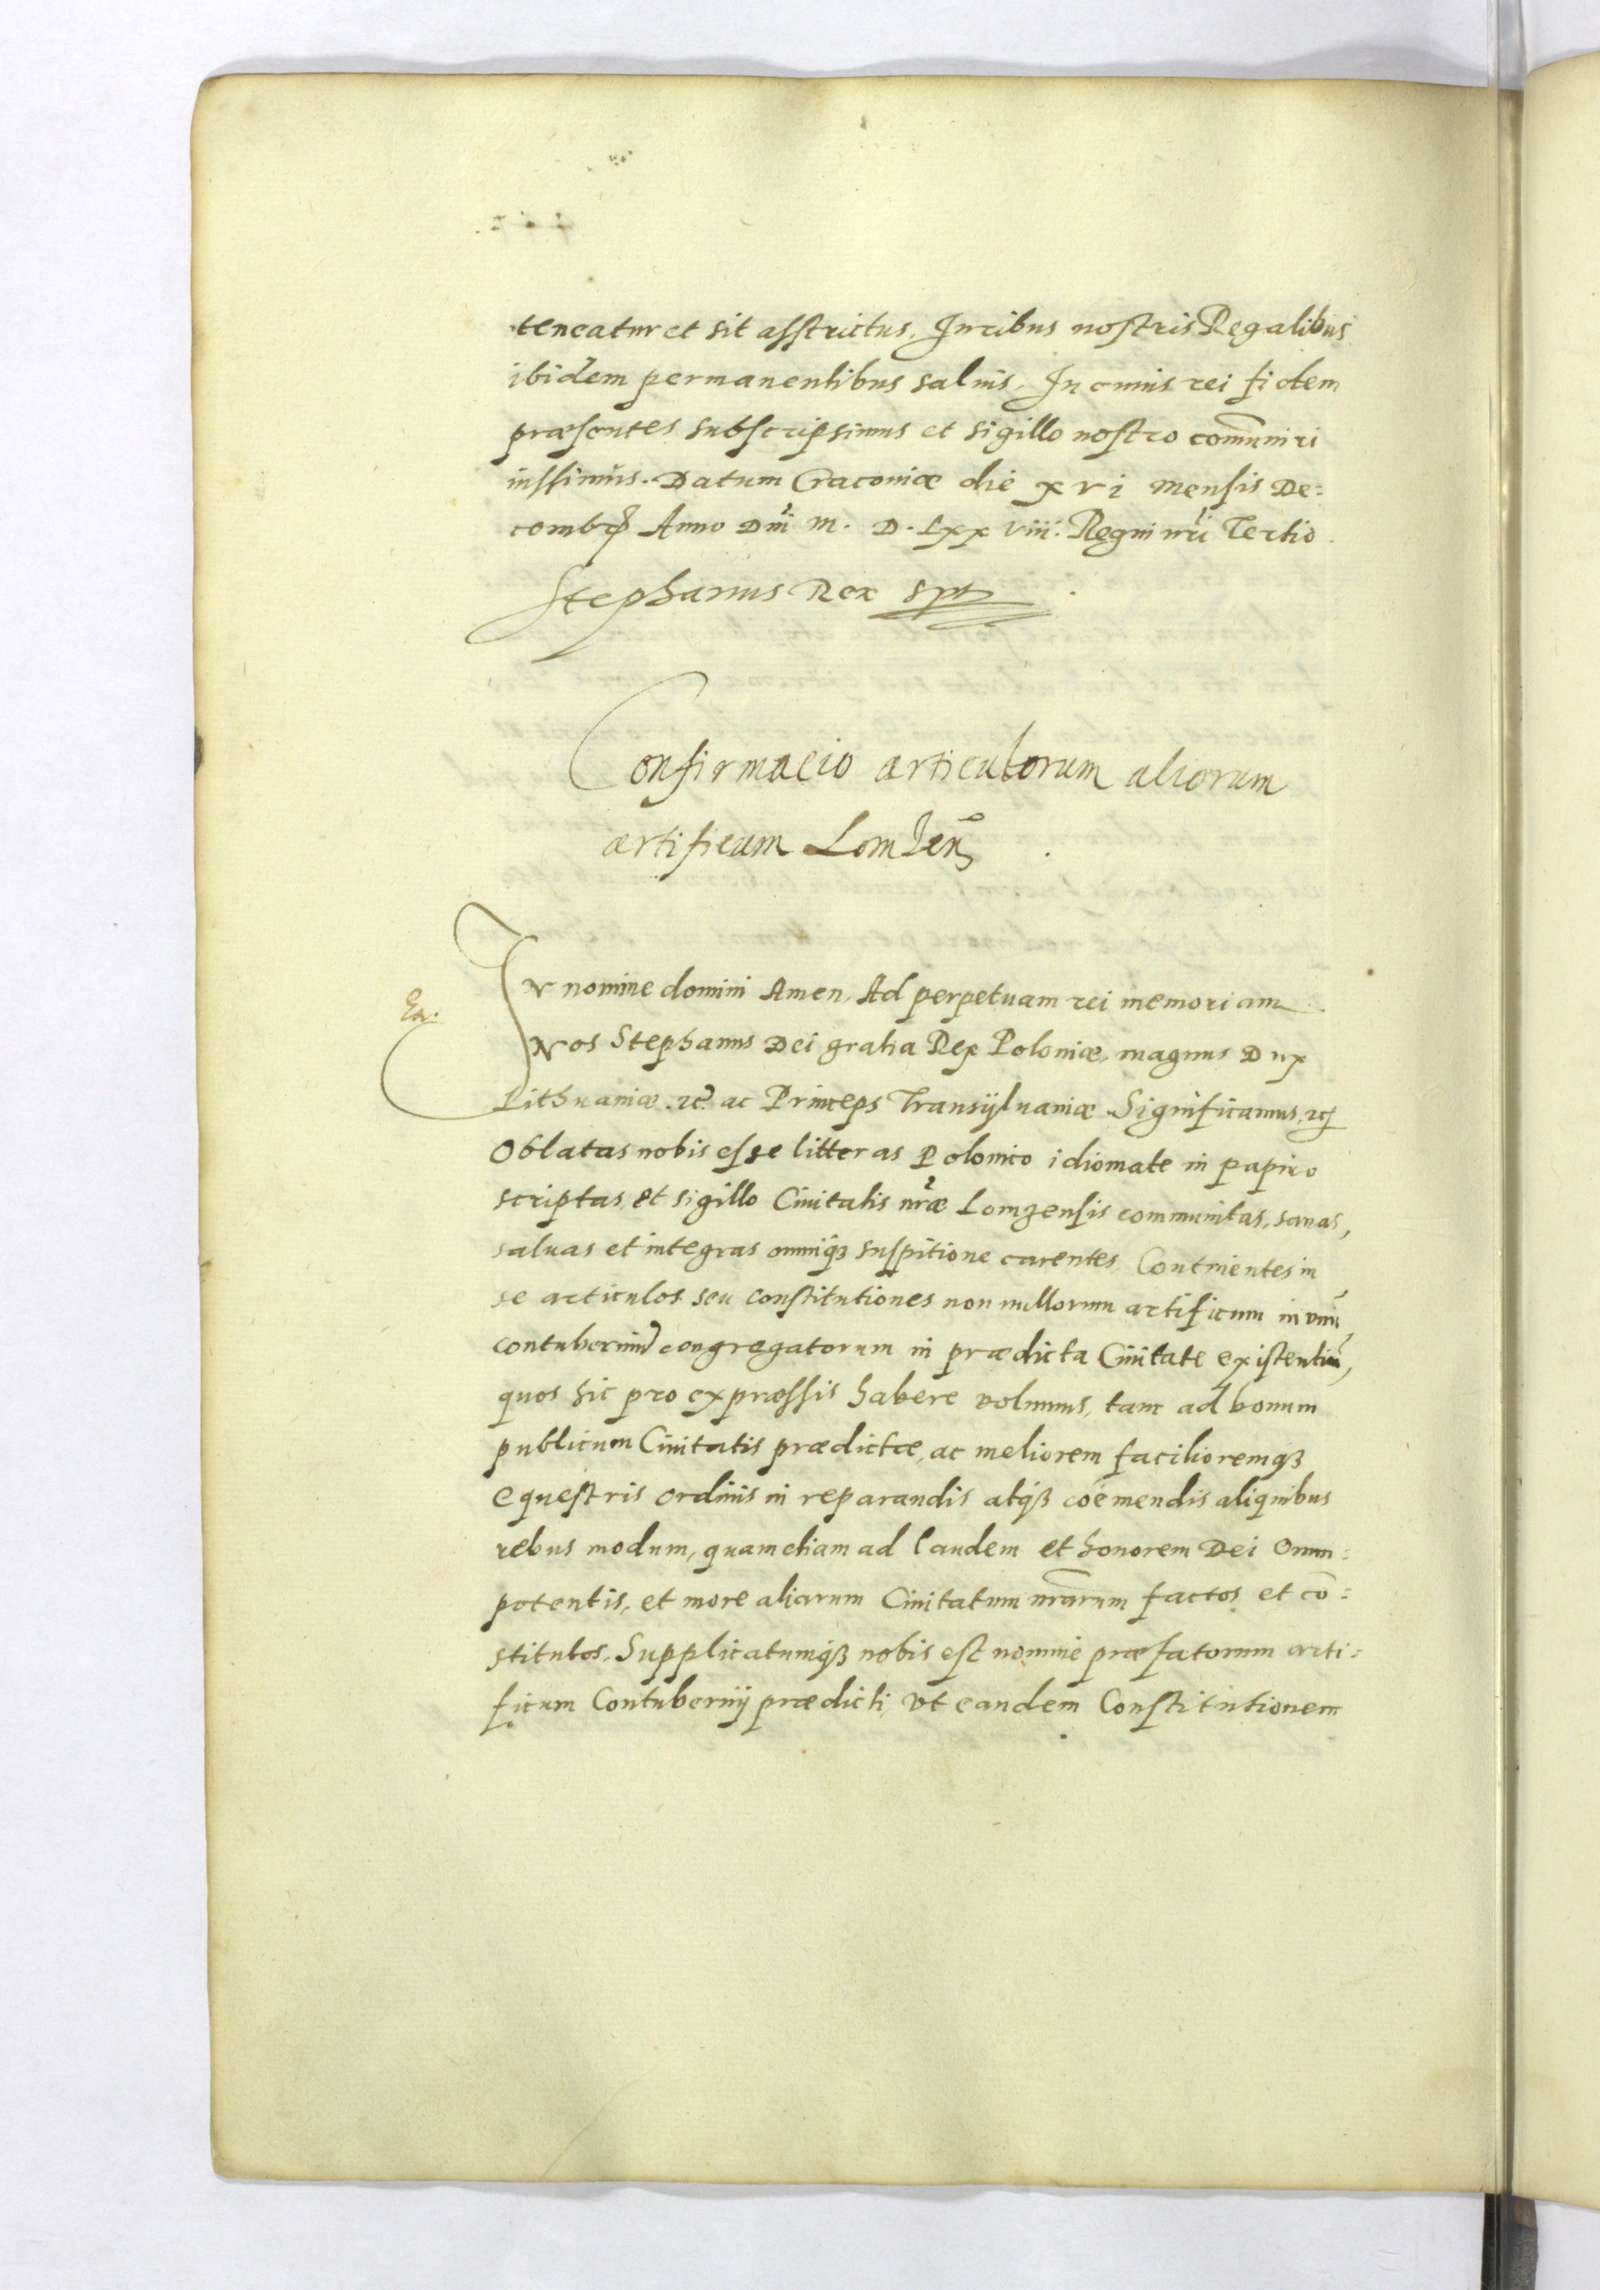 teneatur et sit asstrictus. Iuribus nostris Regalibus
ibidem permanentibus saluis. In cuius rei fidem
præsentes subscripsimus et sigillo nostro com̃uniri
iussimus. Datum Cracouiæ die xvi mensis De=
cembr Anno Dni M. D. Lxx viii. Regni nri Tertio.
Stephanus Rex sst
Confirmacio articulorum aliorum
artificum Lomzen
Ex.
IN nomine domini Amen, Ad perpetuam rei memoriam
Nos Stephanus Dei gratia Rex Poloniæ, magnus Dux
Lithuaniæ, etc ac Princeps Transÿluaniæ. Significamus, etc
Oblatas nobis esse litteras Polonico idiomate in papiro
scriptas, et sigillo Ciuitatis nræ Lomzensis communitas, sanas,
saluas et integras omniq3 suspitione carentes, Continentes in
se articulos seu constitutiones non nullorum artificum in vnũ
contuberniũ congregatorum in prædicta Ciuitate existentiũ,
quos hic pro expræssis habere volumus, tam ad bonum
publicum Ciuitatis prædictæ, ac meliorem facilioremq3
equestris ordinis in reparandis atq3 coëmendis aliquibus
rebus modum, quam etiam ad laudem et honorem Dei Omni=
potentis, et more aliarum Ciuitatum nrãrum factos et cõ=
stitutos. Supplicatumq3 nobis est nomine præfatorum arti=
ficum Contubernij prædicti, vt eandem Constitutionem